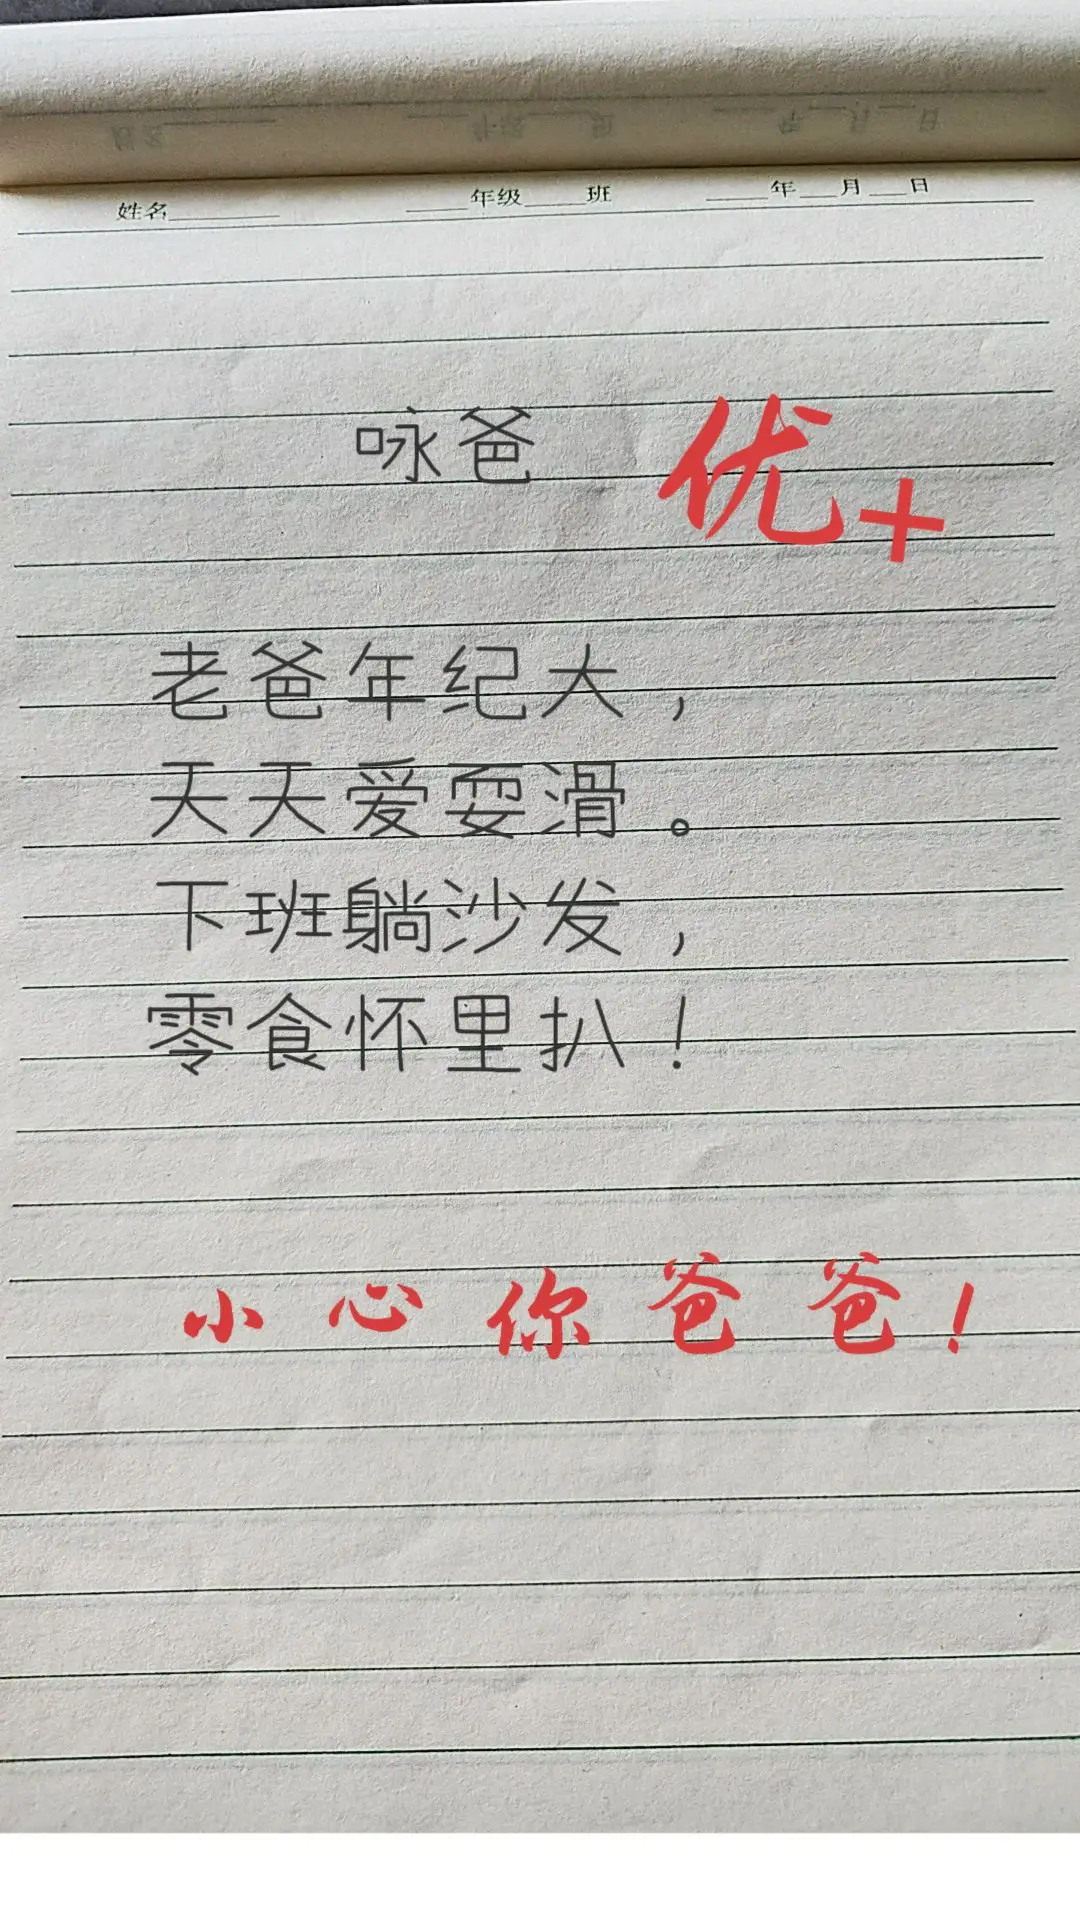 姓名 年级 班 年 月 日
咏爸
优+
老爸年纪大，
天天爱耍滑。
下班躺沙发，
零食怀里扒！
小心你爸爸！